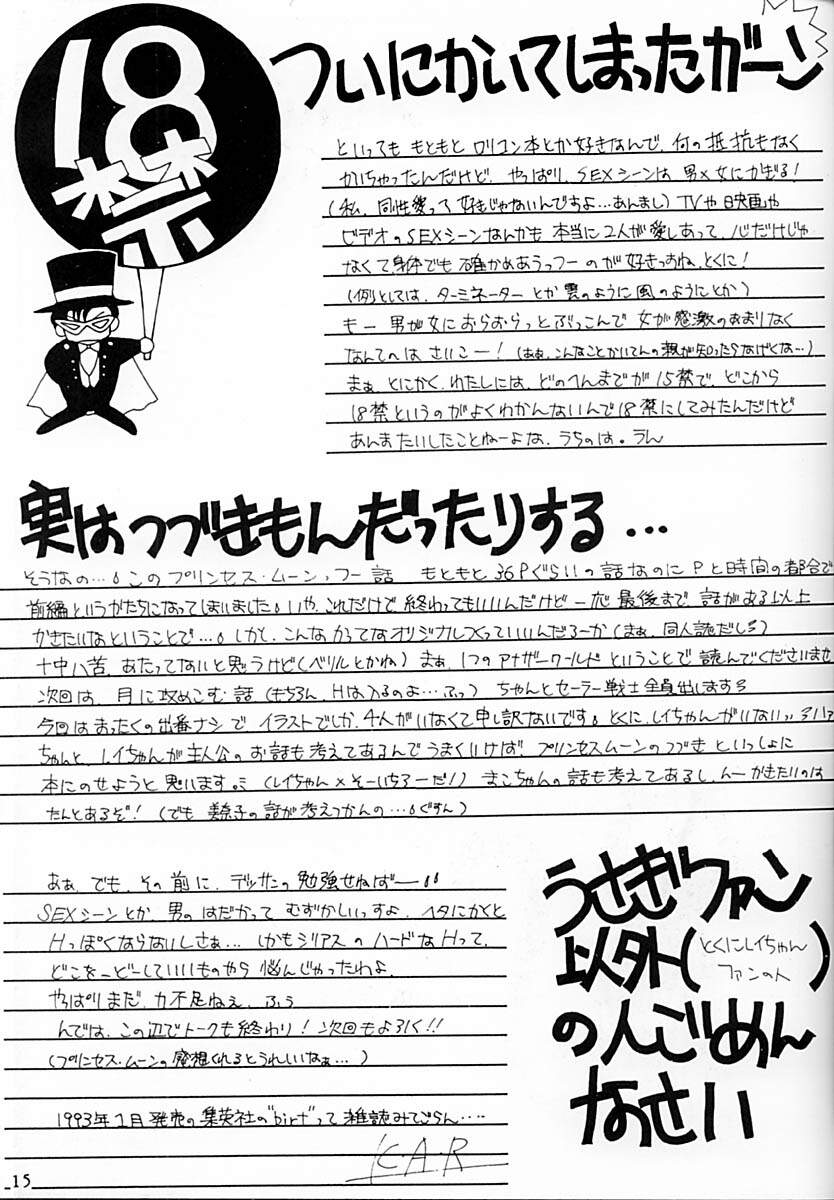 18禁
ついにかいてしまったガーン
といっても もともと ロリコン本とか好きなんで、何の抵抗もなく
かいちゃったんだけど、やっぱり、SEXシーンは 男×女にかぎる!
(私、同性愛って好きじゃないんですよ…あんまし) TVや映画や
ビデオのSEXシーンなんかも 本当に2人が愛しあって、心だけじゃ
なくて身体でも確かめあうっつーのが好きっすね、とくに!
(例としては、ターミネーターとか雲のように風のようにとか)
もー 男が女におらおらっとぶっこんで 女が感激のあまりなく
なんてへはさいこー! (あぁ、こんなことかいてんの親が知ったらなげくな…)
まぁ、とにかく、わたしには、どのへんまでが15禁で、どこから
18禁というのがよくわかんないんで18禁にしてみたんだけど
あんまたいしたことねーよな、うちのは。うん
実はつづきもんだったりする…
そうなの…。このプリンセス・ムーンっつー話 もともと36Pぐらいの話なのに Pと時間の都合で
前編というかたちになってしまいました。いや、これだけで終わってもいいんだけど一応最後まで話がある以上
かきたいなということで…。しかし、こんなかってなオリジナルつくっていいんだろーか(まぁ、同人誌だしょ)
十中八苦、あたってないと思うけど(ベリルとかね) まぁ、1つのアナザーワールドということで読んでくださいませ
次回は、月に攻めこむ話(もちろん、Hは入るのよ…ふっ) ちゃんとセーラー戦士全員出します
今回はまったくの出番ナシで、イラストでしか、4人がいなくて申し訳ないです。とくに、レイちゃんがいない
ちゃんと、レイちゃんが主人公のお話も考えてあるんでうまくいけば、プリンセスムーンのつづきといっしょに
本にのせようと思います。(レイちゃん×そーいちろーだ!) まこちゃんの話も考えてあるし、んーかきたいのは
たんとあるぞ! (でも 美奈子の話が考えつかんの…。ぐすん)
あぁ、でも、その前に、デッサンの勉強せねばー
SEXシーンとか、男のはだかって むずかしいっすよ、ヘタにかくと
Hっぽくならないしさぁ… しかもシリアスのハードなHって、
どこをーどーしていいものやら 悩んじゃったわよ、
やっぱりまだ、力不足ねぇ、ふぅ
んでは、この辺でトークも終わり! 次回もよろしく!!
(プリンセス・ムーンの感想くれるとうれしいなぁ…)
1993年1月発売の集英社の"birt"って雑誌みてごらん…
K・A・R
うさぎファン
以外(とくにレイちゃんファンの人)
の人ごめん
なさい
15